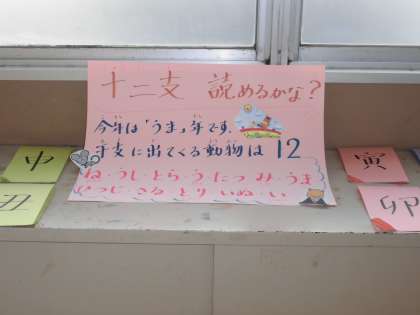 十二支 読めるかな?
今年は「うま」年です。
干支に出てくる動物は 12
ね・うし とら・う たつ み・うま
ひつじ・さる とり いぬ・い
寅
卯